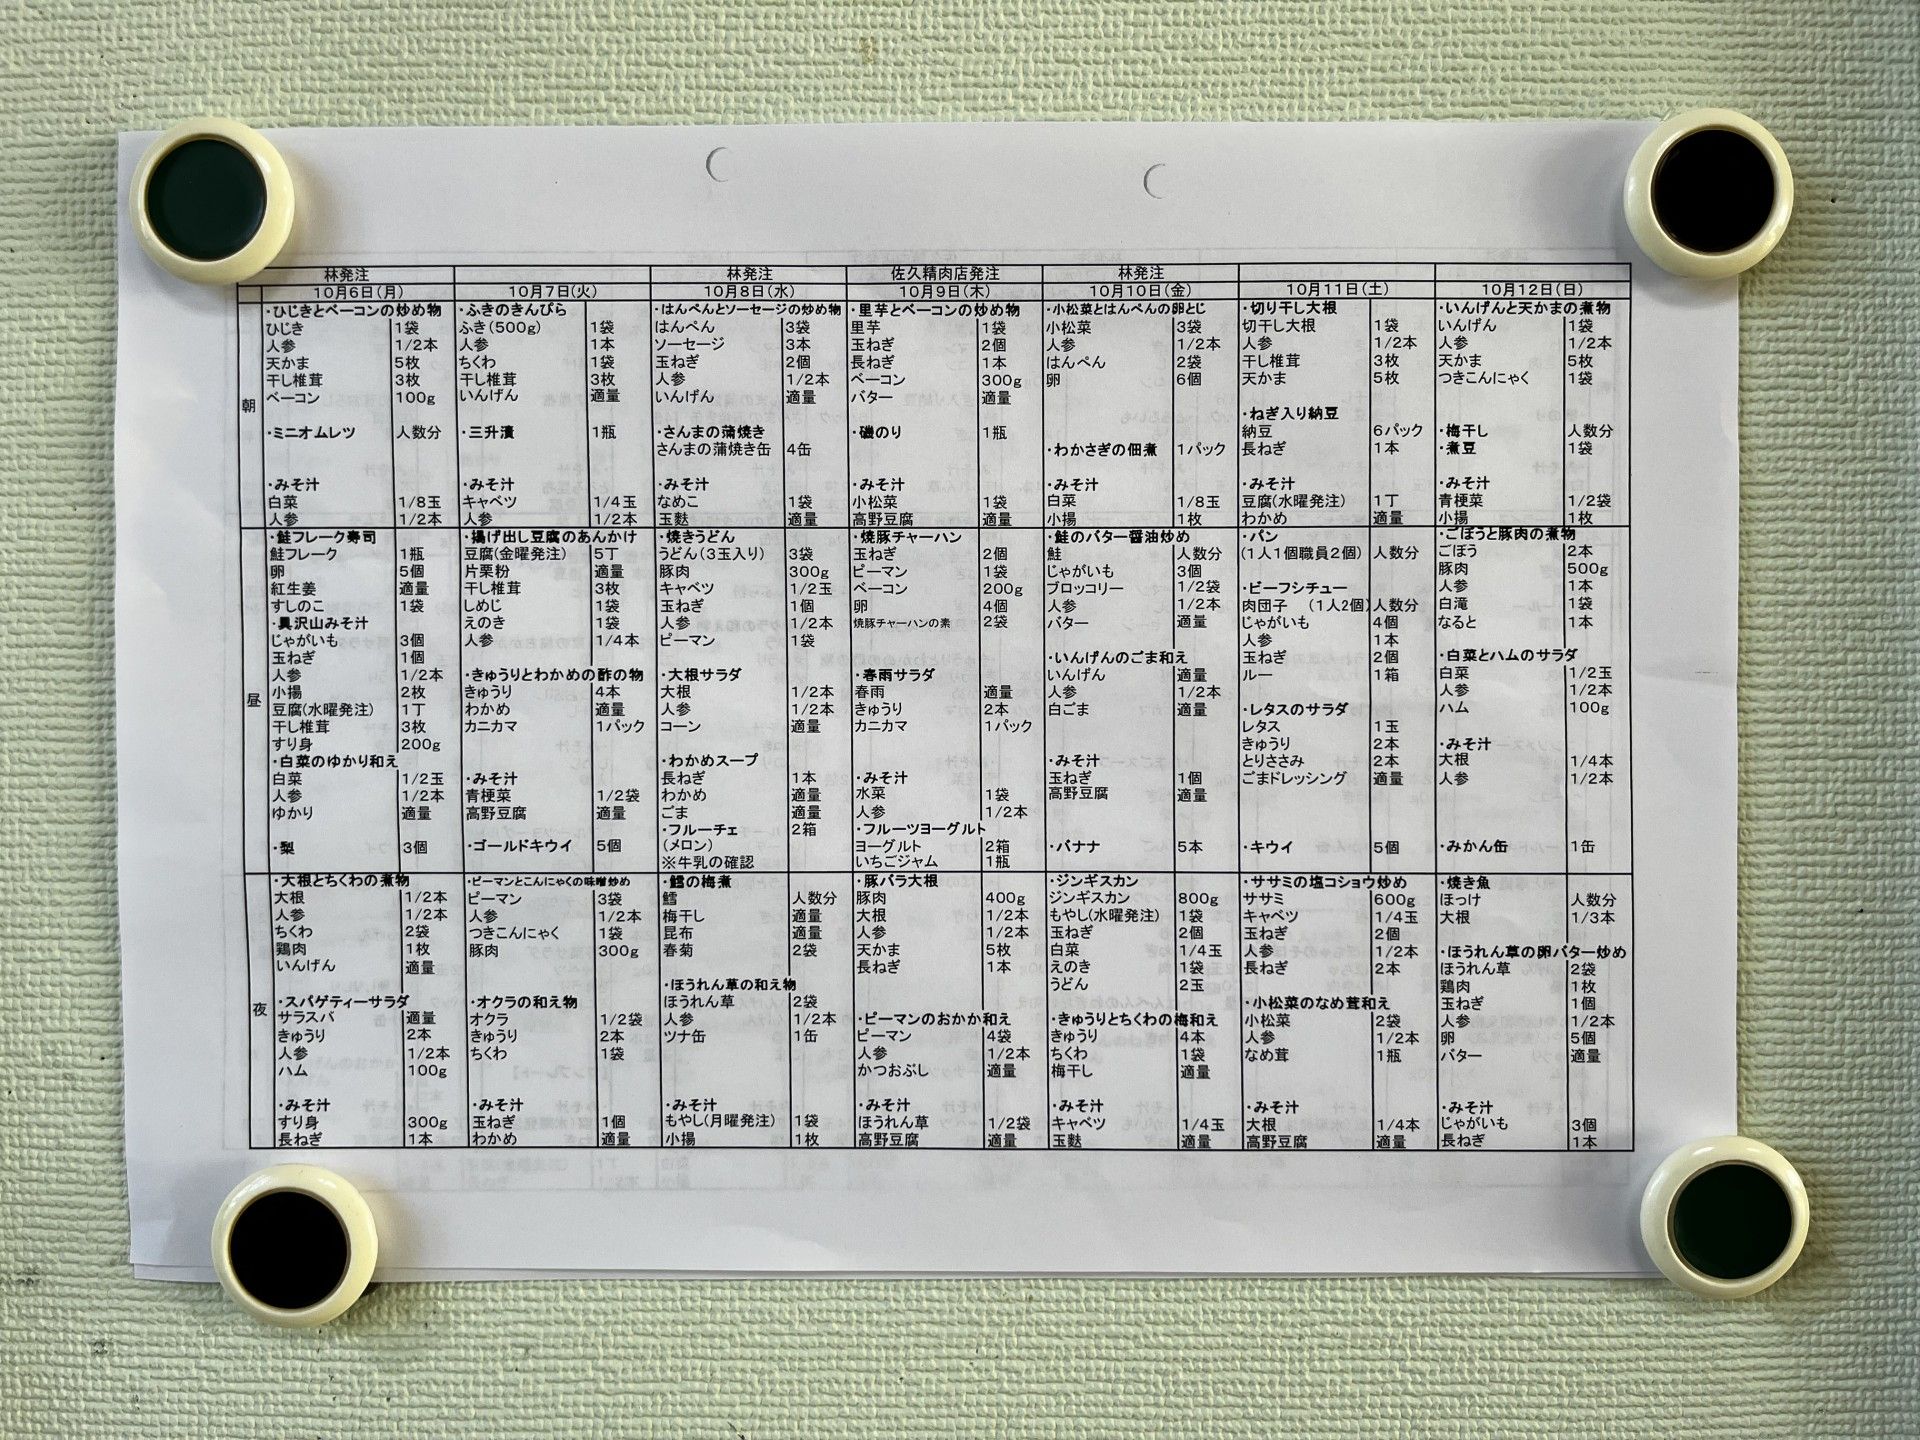 林発注 林発注 佐久精肉店発注 林発注
10月6日(月) 10月7日(火) 10月8日(水) 10月9日(木) 10月10日(金) 10月11日(土) 10月12日(日)
朝
・ひじきとベーコンの炒め物
ひじき 1袋
人参 1/2本
天かま 5枚
干し椎茸 3枚
ベーコン 100g
・ミニオムレツ 人数分
・みそ汁
白菜 1/8玉
人参 1/2本
・ふきのきんぴら
ふき(500g) 1袋
人参 1本
ちくわ 1袋
干し椎茸 3枚
いんげん 適量
・三升漬 1瓶
・みそ汁
キャベツ 1/4玉
人参 1/2本
・はんぺんとソーセージの炒め物
はんぺん 3袋
ソーセージ 3本
玉ねぎ 2個
人参 1/2本
いんげん 適量
・さんまの蒲焼き
さんまの蒲焼き缶 4缶
・みそ汁
なめこ 1袋
玉麩 適量
・里芋とベーコンの炒め物
里芋 1袋
玉ねぎ 2個
長ねぎ 1本
ベーコン 300g
バター 適量
・磯のり 1瓶
・みそ汁
小松菜 1袋
高野豆腐 適量
・小松菜とはんぺんの卵とじ
小松菜 3袋
人参 1/2本
はんぺん 2袋
卵 6個
・わかさぎの佃煮 1パック
・みそ汁
白菜 1/8玉
小揚 1枚
・切り干し大根
切干し大根 1袋
人参 1/2本
干し椎茸 3枚
天かま 5枚
・ねぎ入り納豆
納豆 6パック
長ねぎ 1本
・みそ汁
豆腐(水曜発注) 1丁
わかめ 適量
・いんげんと天かまの煮物
いんげん 1袋
人参 1/2本
天かま 5枚
つきこんにゃく 1袋
・梅干し 人数分
・煮豆 1袋
・みそ汁
青梗菜 1/2袋
小揚 1枚
昼
・鮭フレーク寿司
鮭フレーク 1瓶
卵 5個
紅生姜 適量
すしのこ 1袋
・具沢山みそ汁
じゃがいも 3個
玉ねぎ 1個
人参 1/2本
小揚 2枚
豆腐(水曜発注) 1丁
干し椎茸 3枚
すり身 200g
・白菜のゆかり和え
白菜 1/2玉
人参 1/2本
ゆかり 適量
・梨 3個
・揚げ出し豆腐のあんかけ
豆腐(金曜発注) 5丁
片栗粉 適量
干し椎茸 3枚
しめじ 1袋
えのき 1袋
人参 1/4本
・きゅうりとわかめの酢の物
きゅうり 4本
わかめ 適量
カニカマ 1パック
・みそ汁
青梗菜 1/2袋
高野豆腐 適量
・ゴールドキウイ 5個
・焼きうどん
うどん(3玉入り) 3袋
豚肉 300g
キャベツ 1/2玉
玉ねぎ 1個
人参 1/2本
ピーマン 1袋
・大根サラダ
大根 1/2本
人参 1/2本
コーン 適量
・わかめスープ
長ねぎ 1本
わかめ 適量
ごま 適量
・フルーチェ 2箱
(メロン)
※牛乳の確認
・焼豚チャーハン
玉ねぎ 2個
ピーマン 1袋
ベーコン 200g
卵 4個
焼豚チャーハンの素 2袋
・春雨サラダ
春雨 適量
きゅうり 2本
カニカマ 1パック
・みそ汁
水菜 1袋
人参 1/2本
・フルーツヨーグルト
ヨーグルト 2箱
いちごジャム 1瓶
・鮭のバター醤油炒め
鮭 人数分
じゃがいも 3個
ブロッコリー 1/2袋
人参 1/2本
バター 適量
・いんげんのごま和え
いんげん 適量
人参 1/2本
白ごま 適量
・みそ汁
玉ねぎ 1個
高野豆腐 適量
・バナナ 5本
・パン
(1人1個職員2個) 人数分
・ビーフシチュー
肉団子 (1人2個) 人数分
じゃがいも 4個
人参 1本
玉ねぎ 2個
ルー 1箱
・レタスのサラダ
レタス 1玉
きゅうり 2本
とりささみ 2本
ごまドレッシング 適量
・キウイ 5個
・ごぼうと豚肉の煮物
ごぼう 2本
豚肉 500g
人参 1本
白滝 1袋
なると 1本
・白菜とハムのサラダ
白菜 1/2玉
人参 1/2本
ハム 100g
・みそ汁
大根 1/4本
人参 1/2本
・みかん缶 1缶
夜
・大根とちくわの煮物
大根 1/2本
人参 1/2本
ちくわ 2袋
鶏肉 1枚
いんげん 適量
・スパゲティーサラダ
サラスパ 適量
きゅうり 2本
人参 1/2本
ハム 100g
・みそ汁
すり身 300g
長ねぎ 1本
・ピーマンとこんにゃくの味噌炒め
ピーマン 3袋
人参 1/2本
つきこんにゃく 1袋
豚肉 300g
・オクラの和え物
オクラ 1/2袋
きゅうり 2本
ちくわ 1袋
・みそ汁
玉ねぎ 1個
わかめ 適量
・鱈の梅煮
鱈 人数分
梅干し 適量
昆布 適量
春菊 2袋
・ほうれん草の和え物
ほうれん草 2袋
人参 1/2本
ツナ缶 1缶
・みそ汁
もやし(月曜発注) 1袋
小揚 1枚
・豚バラ大根
豚肉 400g
大根 1/2本
人参 1/2本
天かま 5枚
長ねぎ 1本
・ピーマンのおかか和え
ピーマン 4袋
人参 1/2本
かつおぶし 適量
・みそ汁
ほうれん草 1/2袋
高野豆腐 適量
・ジンギスカン
ジンギスカン 800g
もやし(水曜発注) 1袋
玉ねぎ 2個
白菜 1/4玉
えのき 1袋
うどん 2玉
・きゅうりとちくわの梅和え
きゅうり 4本
ちくわ 1袋
梅干し 適量
・みそ汁
キャベツ 1/4玉
玉麩 適量
・ササミの塩コショウ炒め
ササミ 600g
キャベツ 1/4玉
玉ねぎ 2個
人参 1/2本
長ねぎ 2本
・小松菜のなめ茸和え
小松菜 2袋
人参 1/2本
なめ茸 1瓶
・みそ汁
大根 1/4本
高野豆腐 適量
・焼き魚
ほっけ 人数分
大根 1/3本
・ほうれん草の卵バター炒め
ほうれん草 2袋
鶏肉 1枚
玉ねぎ 1個
人参 1/2本
卵 5個
バター 適量
・みそ汁
じゃがいも 3個
長ねぎ 1本